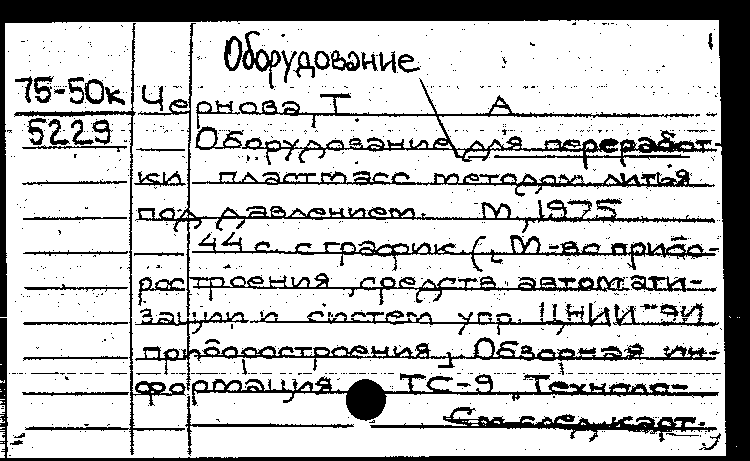 Оборудование
75-50к Чернова, Т. А
5229
Оборудование для переработ-
ки пластмасс методом литья
под давлением. М, 1975
44 с. с график. (М-во прибо-
ростроения, средств автомати-
зации и систем упр. ЦНИИТЭИ
приборостроения). Обзорная ин-
формация. ТС-9 "Техноло-
См. след. карт.